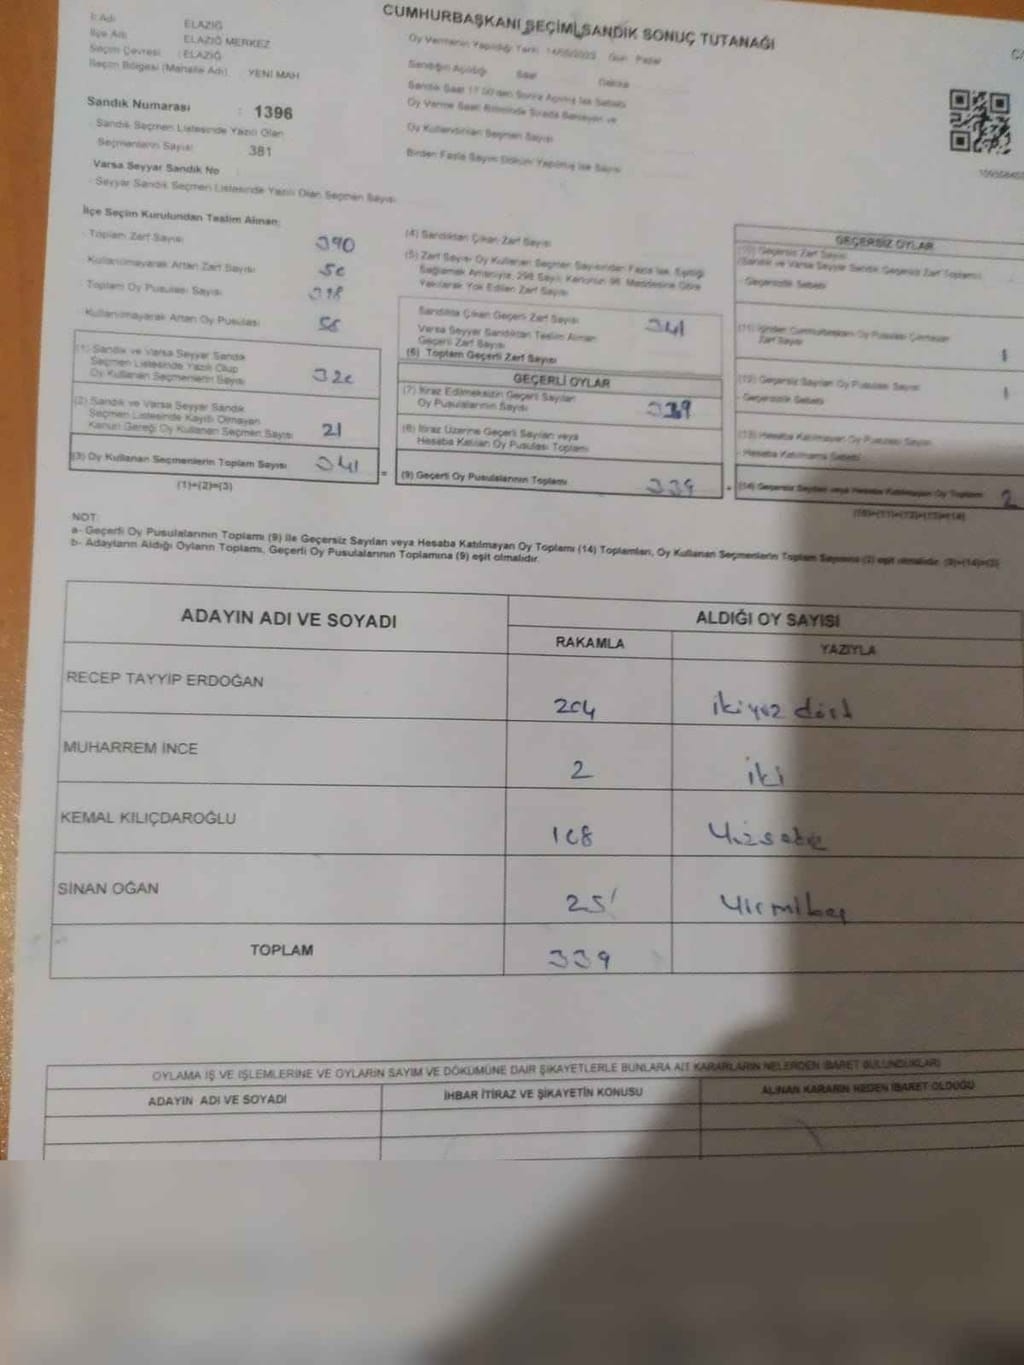 CUMHURBAŞKANI SEÇİMİ SANDIK SONUÇ TUTANAĞI
İl Adı ELAZIĞ
İlçe Adı ELAZIĞ MERKEZ
Seçim Çevresi : ELAZIĞ
Seçim Bölgesi (Mahalle Adı) YENİ MAH
Oy Vermenin Yapıldığı Tarih 14/05/2023 Gün Pazar
Sandığın Açıldığı Saat Dakika
Sandık Numarası : 1396
Sandık Seçmen Listesinde Yazılı Olan
Seçmenlerin Sayısı 381
Varsa Seyyar Sandık No
Seyyar Sandık Seçmen Listesinde Yazılı Olan Seçmen Sayısı
Oy Kullandırılan Seçmen Sayısı
Birden Fazla Sayım Döküm Yapılmış İse Sayısı
İlçe Seçim Kurulundan Teslim Alınan:
Toplam Zarf Sayısı 390
Kullanılmayarak Artan Zarf Sayısı 50
Toplam Oy Pusulası Sayısı
Kullanılmayarak Artan Oy Pusulası
(1) Sandık ve Varsa Seyyar Sandık
Seçmen Listesinde Yazılı Olup
Oy Kullanan Seçmenlerin Sayısı 320
(2) Sandık ve Varsa Seyyar Sandık
Seçmen Listesinde Kayıtlı Olmayan
Kanun Gereği Oy Kullanan Seçmen Sayısı 21
(3) Oy Kullanan Seçmenlerin Toplam Sayısı 341
(1)+(2)=(3)
(4) Sandıktan Çıkan Zarf Sayısı
(5) Zarf Sayısı Oy Kullanan Seçmen Sayısından Fazla İse, Eşitliği
Sağlamak Amacıyla, 298 Sayılı Kanunun 98. Maddesine Göre
Yakılarak Yok Edilen Zarf Sayısı
Sandıkta Çıkan Geçerli Zarf Sayısı 341
Varsa Seyyar Sandıktan Teslim Alınan
Geçerli Zarf Sayısı
(6) Toplam Geçerli Zarf Sayısı
GEÇERLİ OYLAR
(7) İtiraz Edilmeksizin Geçerli Sayılan
Oy Pusulalarının Sayısı 339
(8) İtiraz Üzerine Geçerli Sayılan veya
Hesaba Katılan Oy Pusulası Toplamı
= (9) Geçerli Oy Pusulalarının Toplamı 339
GEÇERSİZ OYLAR
(10) Geçersiz Zarf Sayısı
(Sandık ve Varsa Seyyar Sandık Geçersiz Zarf Toplamı)
Geçersizlik Sebebi
Zarf Sayısı 1
(12) Geçersiz Sayılan Oy Pusulası Sayısı 1
Geçersizlik Sebebi
(13) Hesaba Katılmayan Oy Pusulası Sayısı
Hesaba Katılmama Sebebi
+ (14) Geçersiz Sayılan veya Hesaba Katılmayan Oy Toplamı 2
(10)+(11)+(12)+(13)=(14)
NOT:
a- Geçerli Oy Pusulalarının Toplamı (9) ile Geçersiz Sayılan veya Hesaba Katılmayan Oy Toplamı (14) Toplamları, Oy Kullanan Seçmenlerin Toplam Sayısına (3) eşit olmalıdır. (9)+(14)=(3)
b- Adayların Aldığı Oyların Toplamı, Geçerli Oy Pusulalarının Toplamına (9) eşit olmalıdır.
ADAYIN ADI VE SOYADI ALDIĞI OY SAYISI
RAKAMLA YAZIYLA
RECEP TAYYİP ERDOĞAN 204 ikiyüz dört
MUHARREM İNCE 2 iki
KEMAL KILIÇDAROĞLU 108 Yüzsekiz
SİNAN OĞAN 25 Yirmibeş
TOPLAM 339
OYLAMA İŞ VE İŞLEMLERİNE VE OYLARIN SAYIM VE DÖKÜMÜNE DAİR ŞİKAYETLERLE BUNLARA AİT KARARLARIN NELERDEN İBARET BULUNDUKLARI
ADAYIN ADI VE SOYADI İHBAR İTİRAZ VE ŞİKAYETİN KONUSU ALINAN KARARIN NEDEN İBARET OLDUĞU